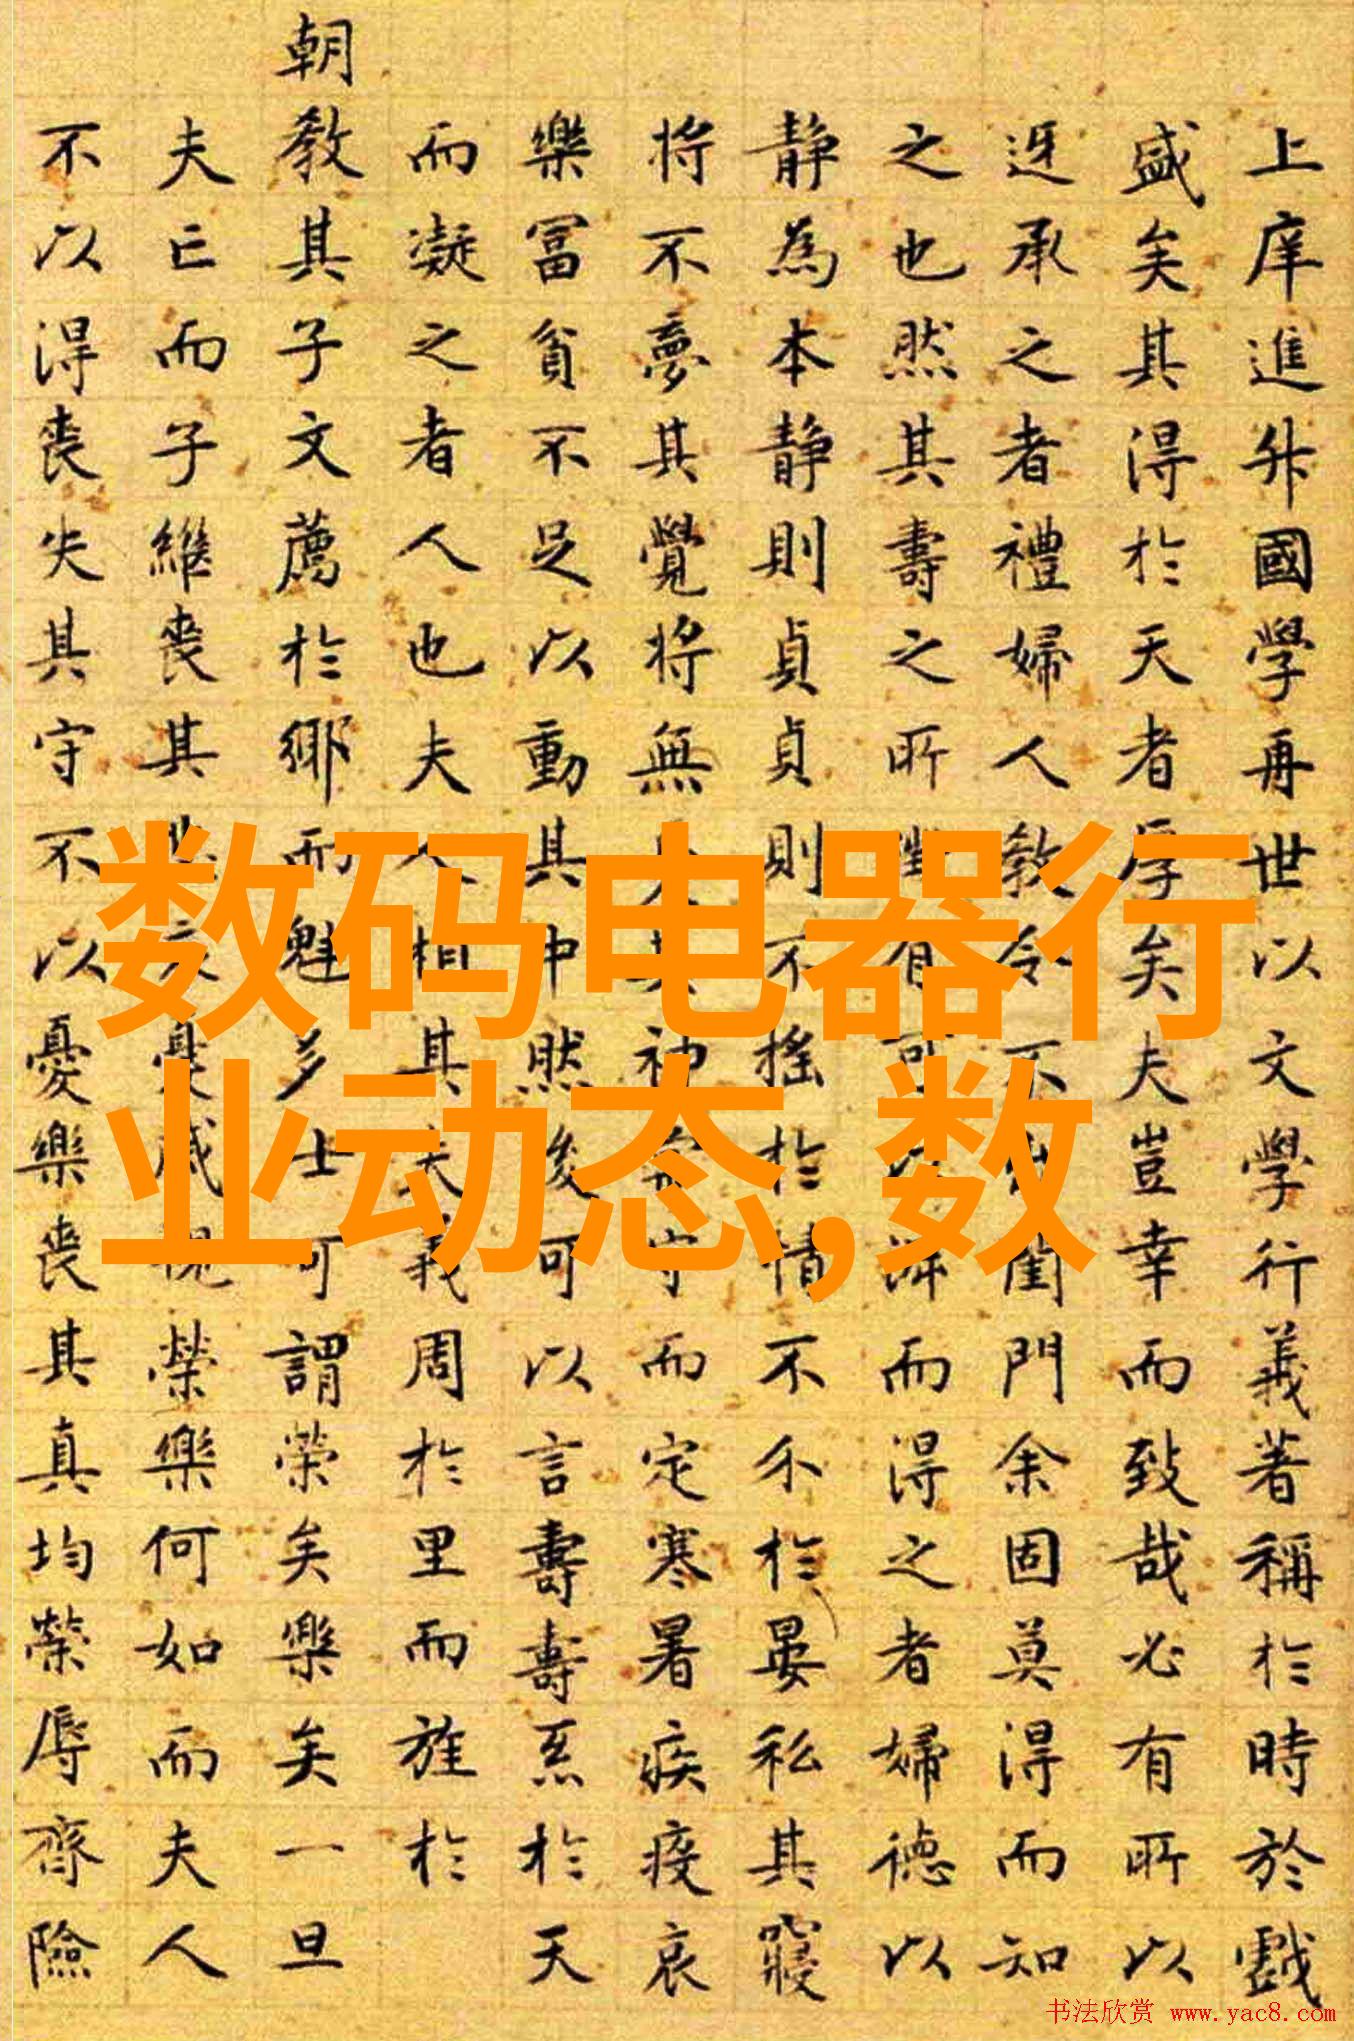 上庠進升國學再世以文學行義著稱於時於戲
盛矣其得於天者厚矣夫豈幸而致哉必有所以
迓承之者禮婦人教令不出閨門余固莫得而知
之也然其壽之所有可而得之者婦德以
静為本静則貞貞則不搖於情不尒於晏私其寢
将不夢其覺将無其神守而定寒暑疾疫哀
樂冨貧不足以動其中然後可以言壽壽烝於天
而凝之者人也夫人相其夫義周於里而旌於
朝教其子文薦於鄉而魁多士可謂榮矣樂矣一旦
夫亡而子繼喪其憂戚視榮樂何如而夫人
不以得喪失其守不以憂樂喪其真均榮辱齊險
数码电器行
业动态,数
书法欣赏 www.yac8.com